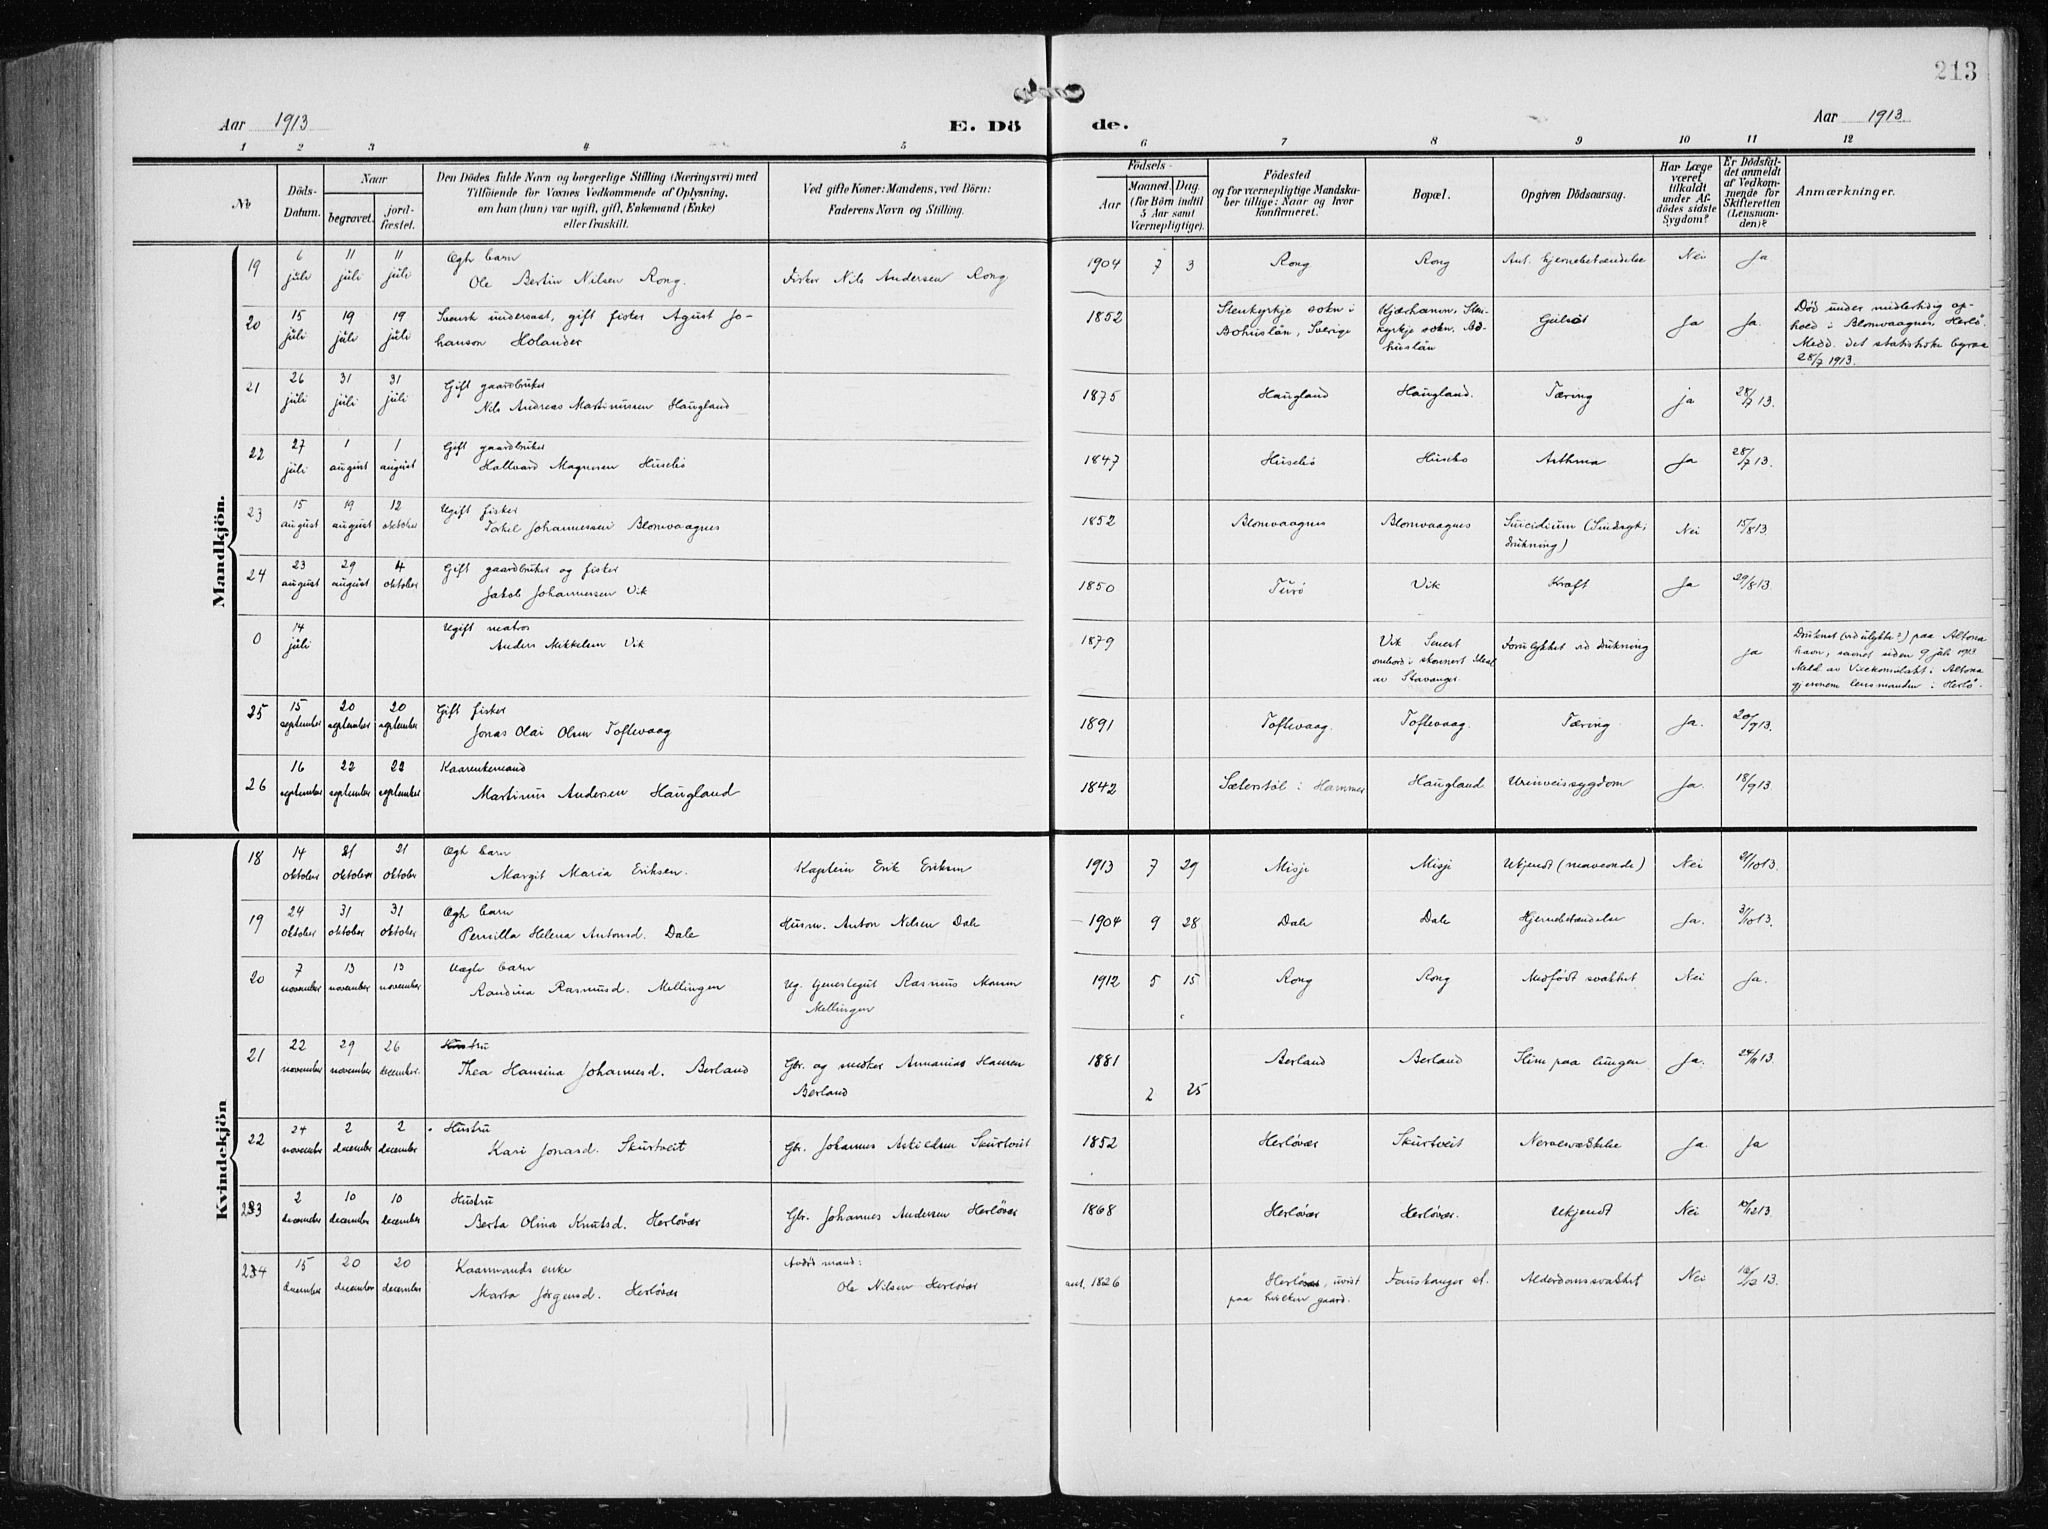 213
Aar 1913
E. Dö
de.
Aar 1913.
1 2 3 4 5 6 7 8 9 10 11 12
No
Döds-Datum.
Naar
begravet.
jord-fæstet.
Den Dödes fulde Navn og borgerlige Stilling (Næringsvei) med
Tilföiende for Voxnes Vedkommende af Oplysning,
om han (hun) var ugift, gift, Enkemand (Enke)
eller fraskilt.
Ved gifte Koner: Mandens, ved Börn:
Faderens Navn og Stilling.
Födsels-
Aar
Maaned. Dag.
(for Börn indtil
5 Aar samt
Værnepligtige).
Födested
og for værnepligtige Mandska-
ber tillige: Naar og hvor
konfirmeret.
Bopæl.
Opgiven Dödsaarsag.
Har Læge
været
tilkaldt
under Af-
dödes sidste
Sygdom?
Er Dödsfal-
det anmeldt
af Vedkom-
mende for
Skifteretten
(Lensman-
den)?
Anmærkninger.
Mandkjön.
19 6 juli 11 juli 11 juli Ægte barn
Ole Bertin Nilsen Rong. Fisker Nils Andersen Rong 1904 7 3 Rong Rong Ant. hjernebetændelse Nei Ja
20 15 juli 19 juli 19 juli Svensk undersaat, gift fisker Agust Jo-
hanson Holander 1852 Stenkyrkje sokn i
Bohuslän, Sverige Kjærhamn, Sten-
kyrkje sokn, Bo-
huslän Gulsot Ja Ja. Död under midlertidig op-
hold i Blomvaagnes, Herlö.
Medd. det statistiske byraa
28/7 1913.
21 26 juli 31 juli 31 juli Gift gaardbruker
Nils Andreas Martinussen Haugland 1875 Haugland Haugland. Tæring ja 28/7 13.
22 27 juli 1 august 1 august Gift gaardbruker
Hallvard Magnesen Husebö 1847 Husebö Husebö Asthma Ja 28/7 13.
23 15 august 19 august 12 oktober Ugift fisker
Torkel Johannessen Blomvaagnes 1852 Blomvaagnes Blomvaagnes Suicidium (Sindssyk;
drukning) Nei 15/8 13.
24 23 august 29 august 4 oktober Gift gaardbruker og fisker
Jakob Johannessen Vik 1850 Turö Vik Kræft Ja 29/8 13.
0 14 juli Ugift matros
Anders Mikkelsen Vik 1879 Vik Senest
ombord i skonnert Ideal
av Stavanger. Forulykket ved drukning ja Druknet (ved ulykke?) paa Altona
havn, savnet siden 9 juli 1913
Meld. av Vicekonsulatet i Altona
gjennem lensmanden i Herlö.
25 15 september 20 september 20 september Gift fisker
Jonas Olai Olsen Toftevaag 1891 Toftevaag. Toftevaag. Tæring Ja. 20/9 13.
26 16 september 22 september 22 september Kaarenkemand
Martinus Andersen Haugland 1842 Sæterstöl i Hammer Haugland Urinveissygdom Ja. 18/9 13.
Kvindekjön
18 14 oktober 21 oktober 21 oktober Ægte barn
Margit Maria Eriksen. Kaptein Erik Eriksen 1913 7 29 Misje Misje Ukjendt (maveonde) Nei 21/10 13.
19 24 oktober 31 oktober 31 oktober Ægte barn
Pernilla Helena Antonsd. Dale Husm. Anton Nilsen Dale 1904 9 28 Dale Dale Hjernebetændelse Ja. 31/10 13.
20 7 november 13 november 13 november Uægte barn
Randina Rasmusd. Mellingen Ug. tjenestegut Rasmus Monsen
Mellingen 1912 5 15 Rong Rong Medfödt svakhet Nei Ja.
21 22 november 29 november 26 december. Hustru
Thea Hansina Johannesd. Berland Gbr. og snedker Annanias Hansen
Berland 1881 2 25 Berland Berland Slim paa lungen Ja. 24/11 13.
22 24 november 2 december 2 december Hustru
Kari Jonasd. Skurtveit Gbr. Johannes Askildsen Skurtveit 1852 Herlövær Skurtveit Nervesvækkelse Ja. Ja
23 2 december 10 december 10 december Hustru
Berta Olina Knutsd. Herlövær Gbr. Johannes Andersen Herlövær 1868 Herlövær Herlövær. Ukjendt Nei 10/12 13.
24 15 december 20 december 20 december Kaarmands enke
Marta Jörgensd. Herlövær Avdöd mand:
Ole Nilsen Herlövær ant. 1826 Herlö, uvist
paa hvilken gaard. Fauskanger st. Alderdomssvakhet Nei 13.